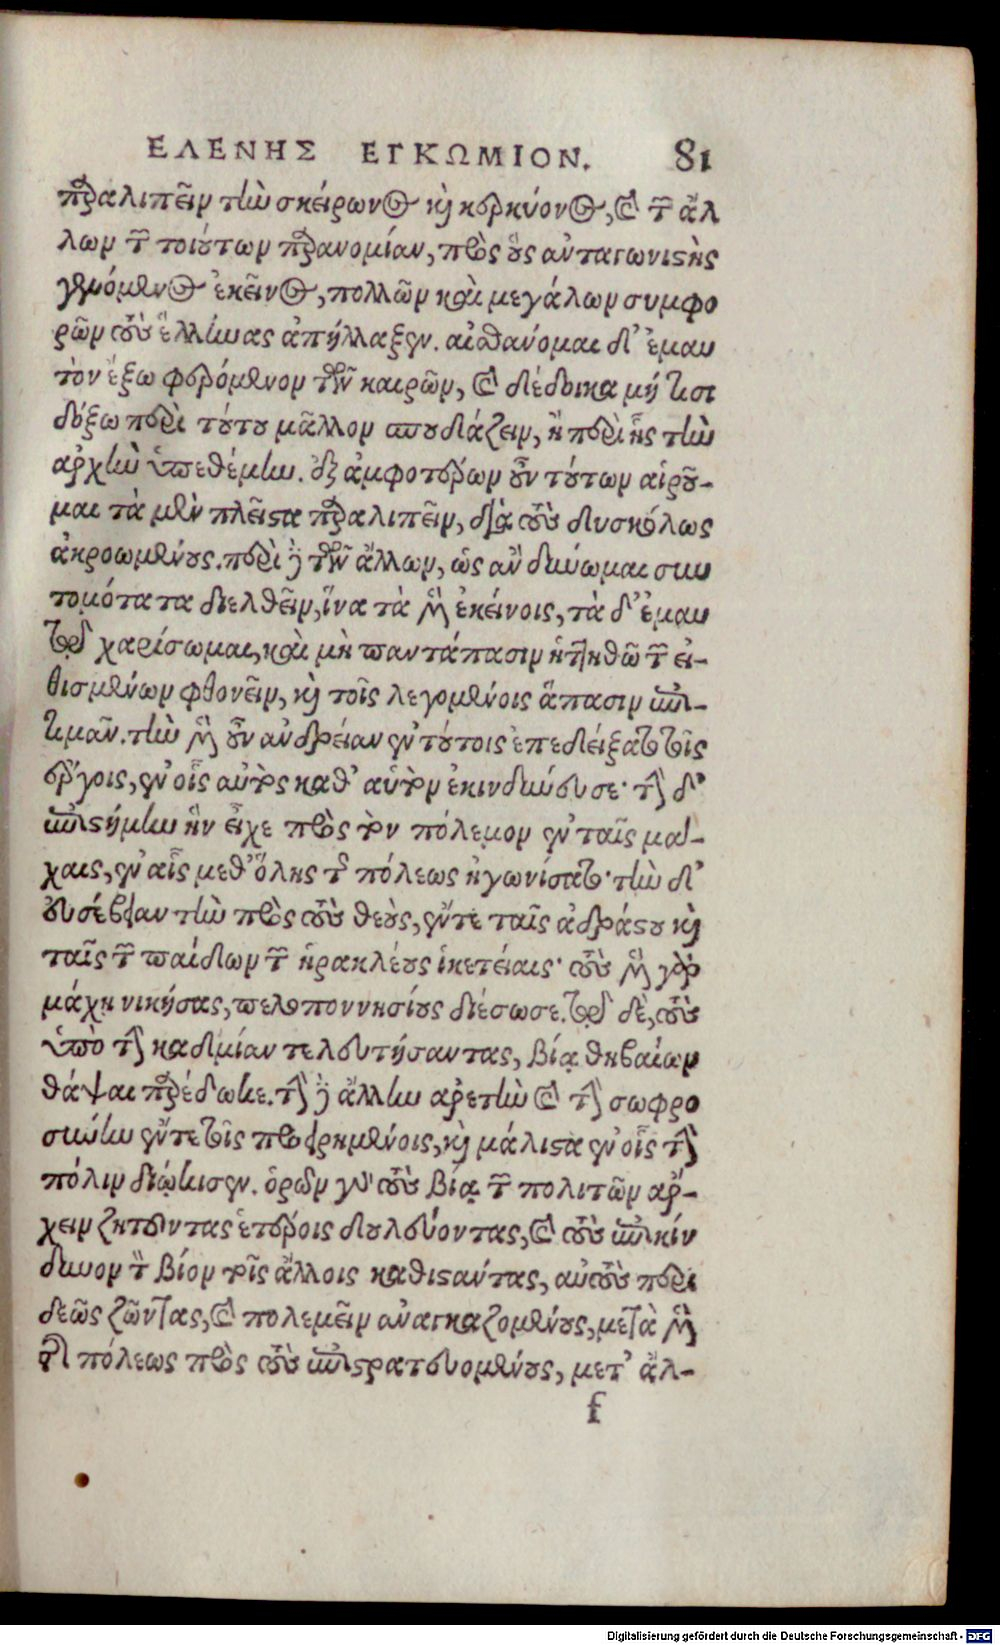 ΕΛΕΝΗΣ ΕΓΚΩΜΙΟΝ. 81
παραλιπεῖν τὴν σκείρωνος καὶ κερκύονος, καὶ τῶν ἄλ
λων τῶν τοιούτων παρανομίαν, πρὸς οὓς ἀνταγωνιστὴς
γενόμενος ἐκεῖνος, πολλῶν καὶ μεγάλων συμφο
ρῶν τοὺς ἕλληνας ἀπήλλαξεν. αἰσθάνομαι δ' ἐμαυ
τὸν ἔξω φερόμενον τῶν καιρῶν, καὶ δέδοικα μή τισι
δόξω περὶ τούτου μᾶλλον σπουδάζειν, ἢ περὶ ἧς τὴν
ἀρχὴν ὑπεθέμην. ἐξ ἀμφοτέρων οὖν τούτων αἱροῦ-
μαι τὰ μὲν πλεῖστα παραλιπεῖν, διὰ τοὺς δυσκόλως
ἀκροωμένους. περὶ δὲ τῶν ἄλλων, ὡς ἂν δύνωμαι συν
τομότατα διελθεῖν, ἵνα τὰ μὲν ἐκείνοις, τὰ δ' ἐμαυ
τῷ χαρίσωμαι, καὶ μὴ παντάπασιν ἡττηθῶ τῶν εἰ-
θισμένων φθονεῖν, καὶ τοῖς λεγομένοις ἅπασιν ἐπι-
τιμᾶν. τὴν μὲν οὖν ἀνδρείαν ἐν τούτοις ἐπεδείξατο τοῖς
ἔργοις, ἐν οἷς αὐτὸς καθ' αὑτὸν ἐκινδύνευσε· τὴν δ'
ἐπιστήμην ἣν εἶχε πρὸς τὸν πόλεμον ἐν ταῖς μά-
χαις, ἐν αἷς μεθ' ὅλης τῆς πόλεως ἠγωνίσατο· τὴν δ'
εὐσέβειαν τὴν πρὸς τοὺς θεοὺς, ἔν τε ταῖς ἀδράστου καὶ
ταῖς τῶν παίδων τῶν ἡρακλέους ἱκετείαις· τοὺς μὲν γὰρ
μάχῃ νικήσας, πελοποννησίους διέσωσε. τῷ δὲ, τοὺς
ὑπὸ τὴν καδμίαν τελευτήσαντας, βίᾳ θηβαίων
θάψαι παρέδωκε. τὴν δὲ ἄλλην ἀρετὴν καὶ τὴν σωφρο
σύνην ἔν τε τοῖς προειρημένοις, καὶ μάλιστα ἐν οἷς τὴν
πόλιν διῴκισεν. ὁρῶν γὰρ τοὺς βίᾳ τῶν πολιτῶν ἄρ-
χειν ζητοῦντας ἑτέροις δουλεύοντας, καὶ τοὺς ἐπικίν
δυνον τὸν βίον τοῖς ἄλλοις καθιστάντας, αὐτοὺς περι
δεῶς ζῶντας, καὶ πολεμεῖν ἀναγκαζομένους, μετὰ μὲν
τῆς πόλεως πρὸς τοὺς ἐπιστρατευομένους, μετ' ἄλ-
f
Digitalisierung gefördert durch die Deutsche Forschungsgemeinschaft - DFG